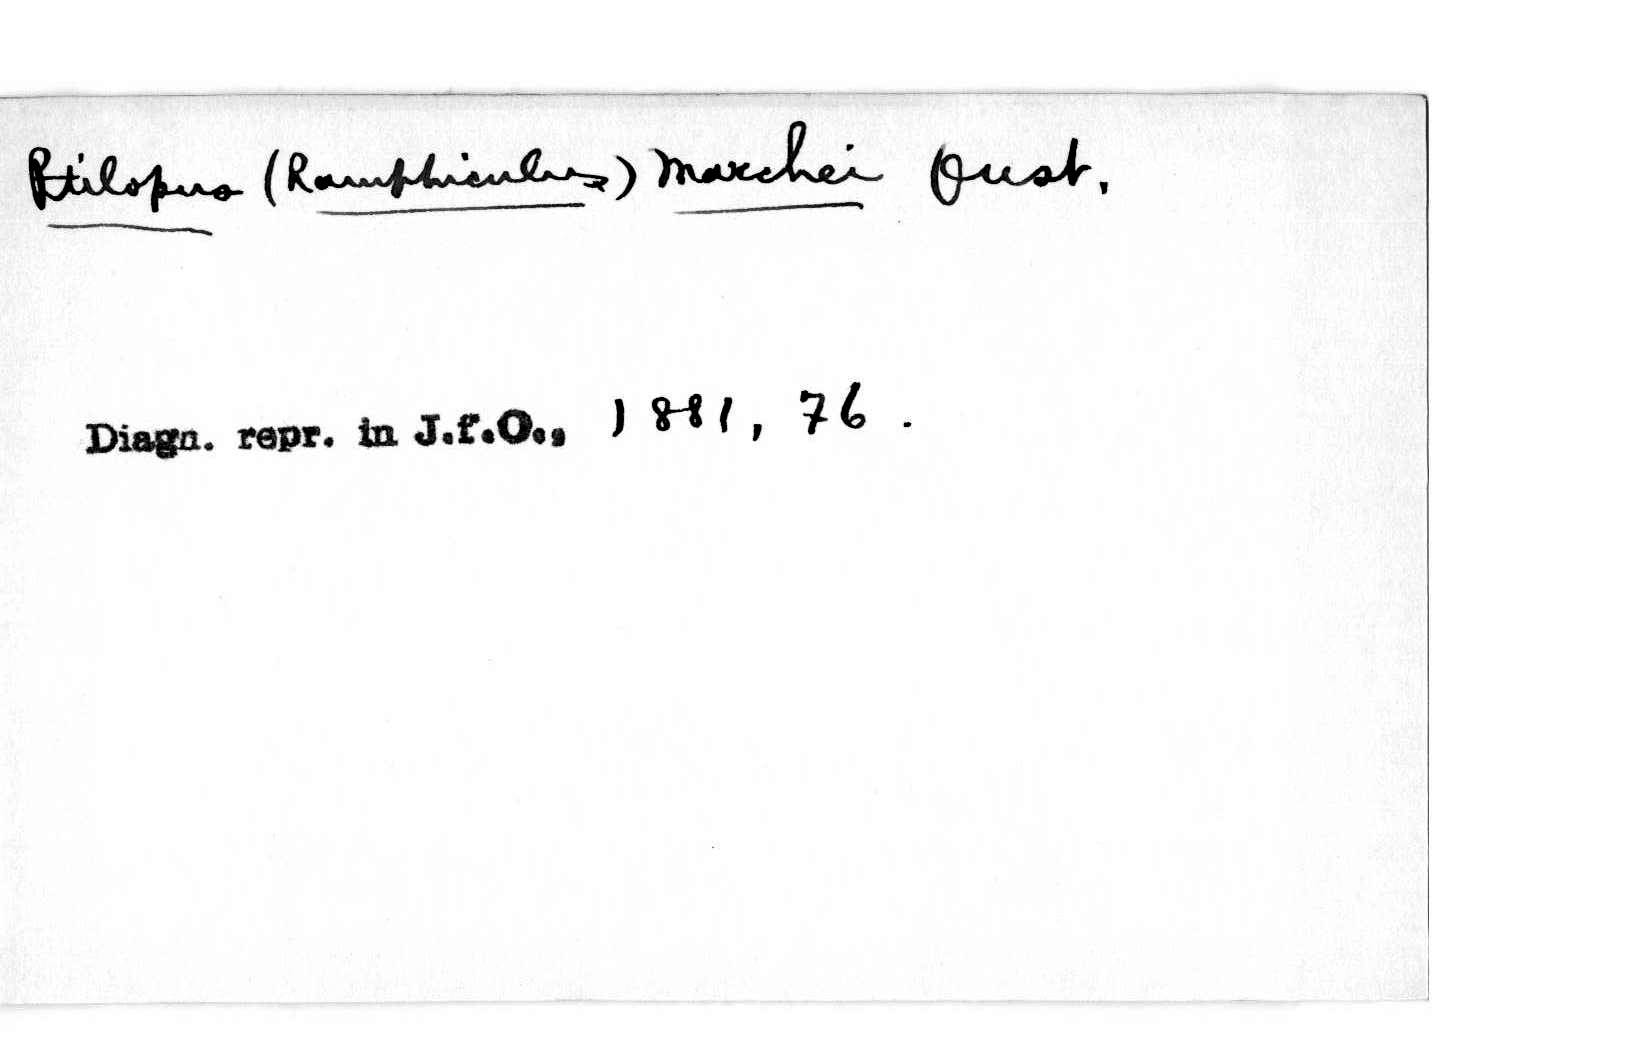 Ptilopus (Ramphiculus) Marchei Oust.
Diagn. repr. in J.f.O., 1881, 76.